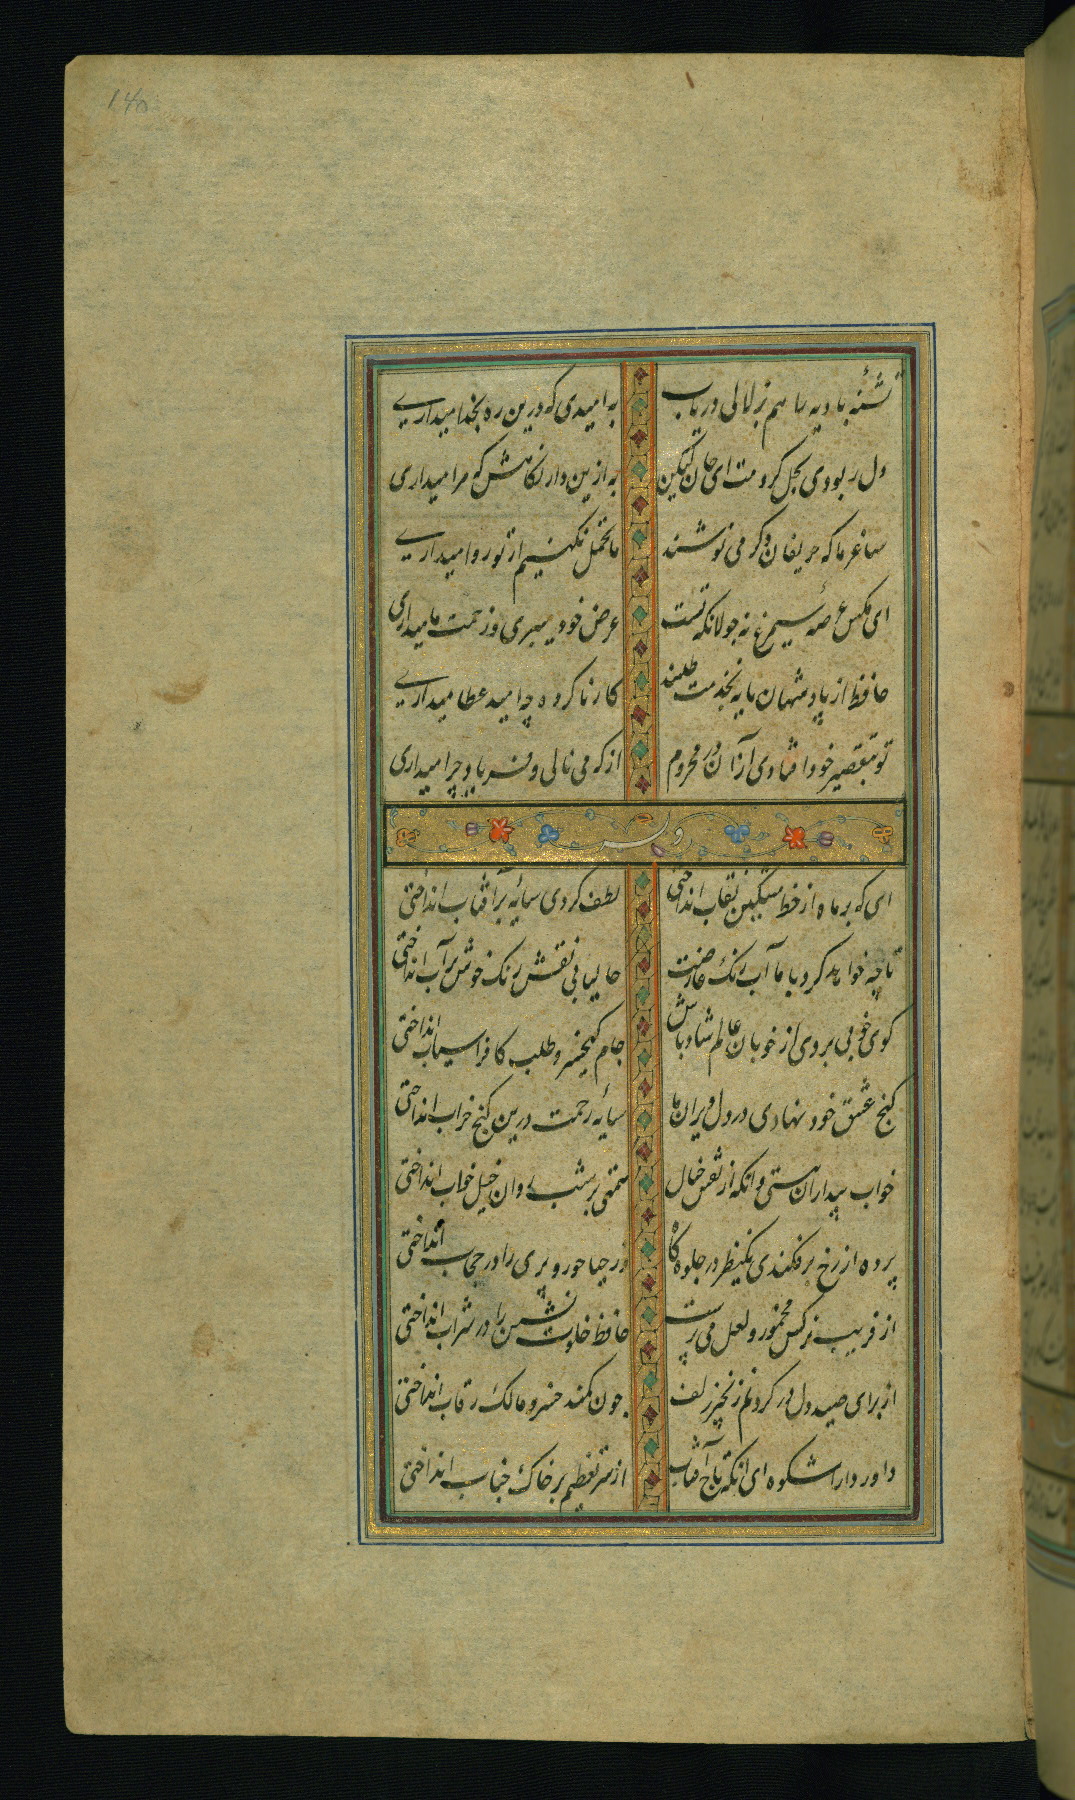 140
تشنه بادیه را هم بزلالی دریاب
به امیدی که درین ره بخدا میداری
دل ربودی و بحل کردمت ای جان لیکن
به ازین دار نگاهش که مرا میداری
ساغر ما که حریفان دگر می نوشند
ما تحمل نکنیم ار تو روا میداری
ای مکس عرصه سیمرغ نه جولانکه تست
عرض خود میبری و زحمت ما میداری
حافظ از پادشهان پایه بخدمت طلبند
کار ناکرده چه امید عطا میداری
تو بتقصیر خود افتادی از آن در محروم
از که می نالی و فریاد چرا میداری
وله
ای که بر ماه از خط مشکین نقاب انداختی
لطف کردی سایه بر آفتاب انداختی
تا چه خواهد کرد با ما آب رنک عارضت
حالیا بی نقش رنک خوش بر آب انداختی
کوی خوبی بردی از خوبان عالم شاد باش
جام کیخسرو طلب کافراسیاب انداختی
کنج عشق خود نهادی در دل ویران ما
سایه رحمت درین کنج خراب انداختی
خواب بیداران ببستی وانکه از نقش خیال
تهمتی بر شب روان خیل خواب انداختی
پرده از رخ برفکندی یکنظر در جلوه کاه
از حیا حور و پری را در حجاب انداختی
از فریب نرکس مخمور و لعل می پرست
حافظ خلوت نشین را در شراب انداختی
از برای صید دل در کردنم زنجیر زلف
چون کمند خسرو مالک رقاب انداختی
داور دارا شکوه ای آنکه تاج آفتاب
از سر تعظیم بر خاک جناب انداختی